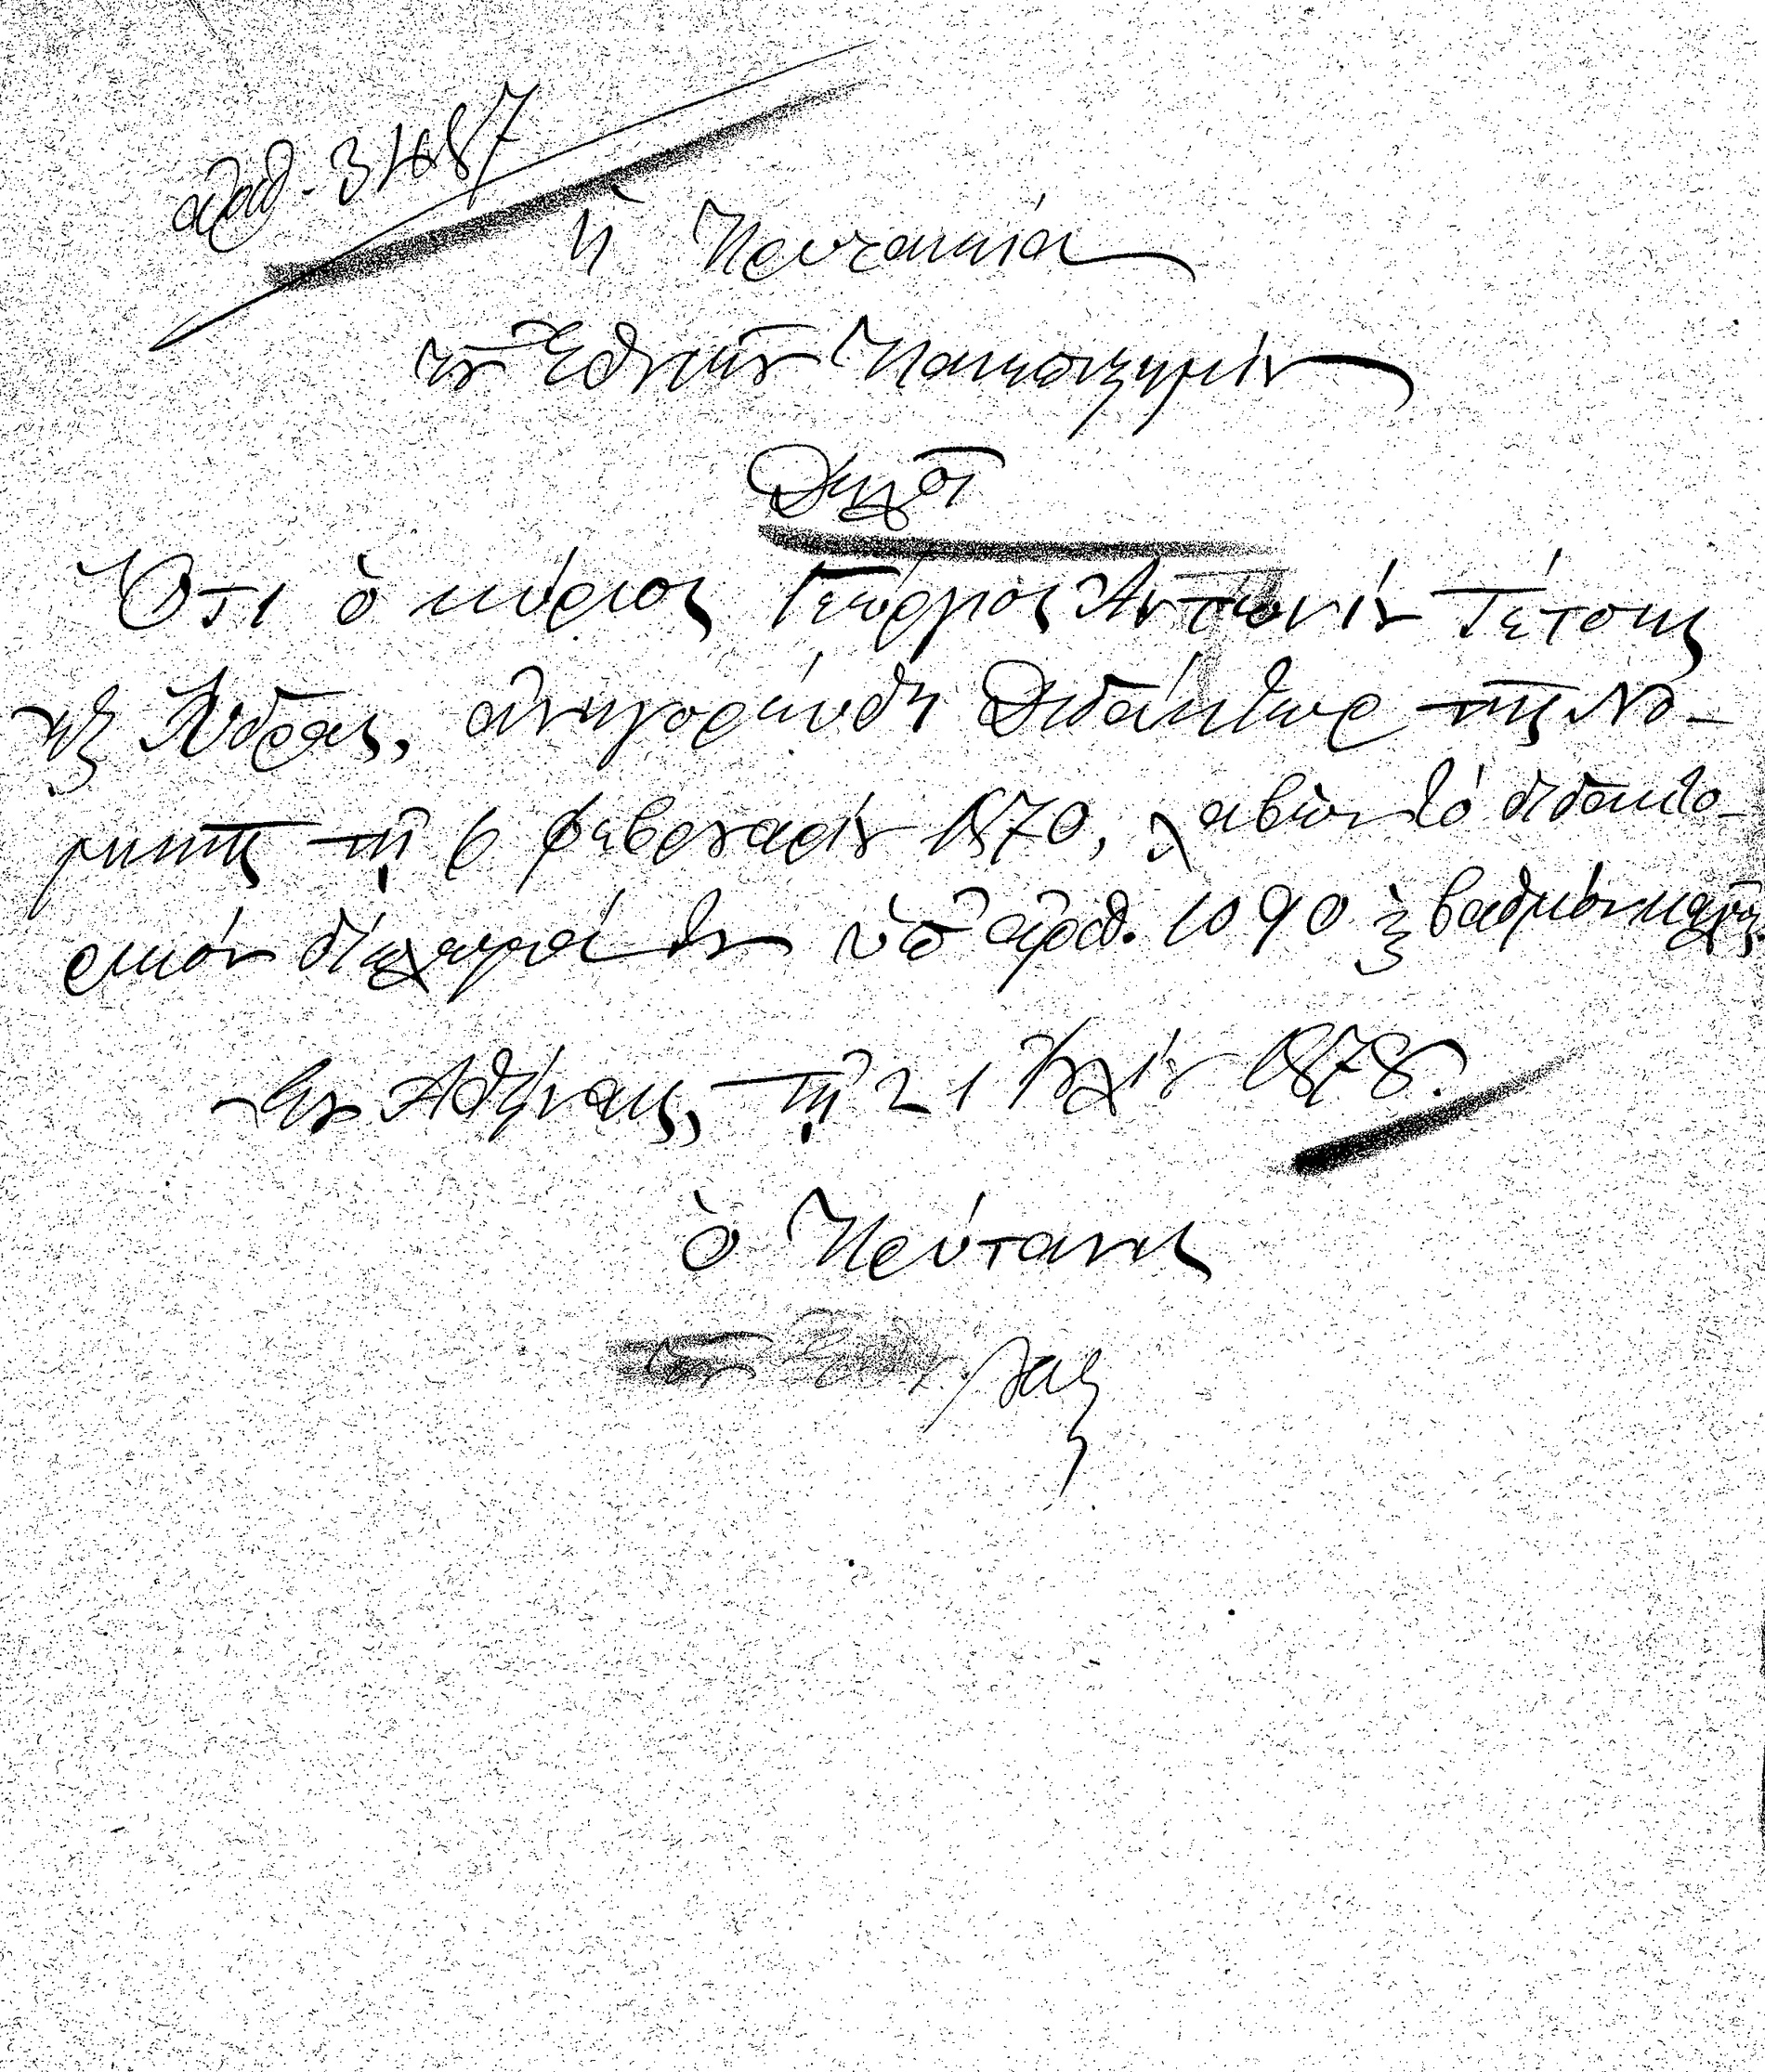 ἀριθ. 3487
Ἡ Πρυτανεία
τοῦ Ἐθνικοῦ Πανεπιστημίου
Δηλοῖ
Ὅτι ὁ κύριος Γεώργιος Ἀντωνίου Τέτσης
ἐξ Ὕδρας, ἀνηγορεύθη Διδάκτωρ τῆς Νο-
μικῆς τῇ 6 Φεβρουαρίου 1870, λαβὼν τό διδακτο-
ρικόν δίπλωμά του ὑπ' ἀριθ. 1090 βαθμόν καλῶς.
Ἐν Ἀθήναις, τῇ 21 Ἰουλίου 1878.
ὁ Πρύτανις